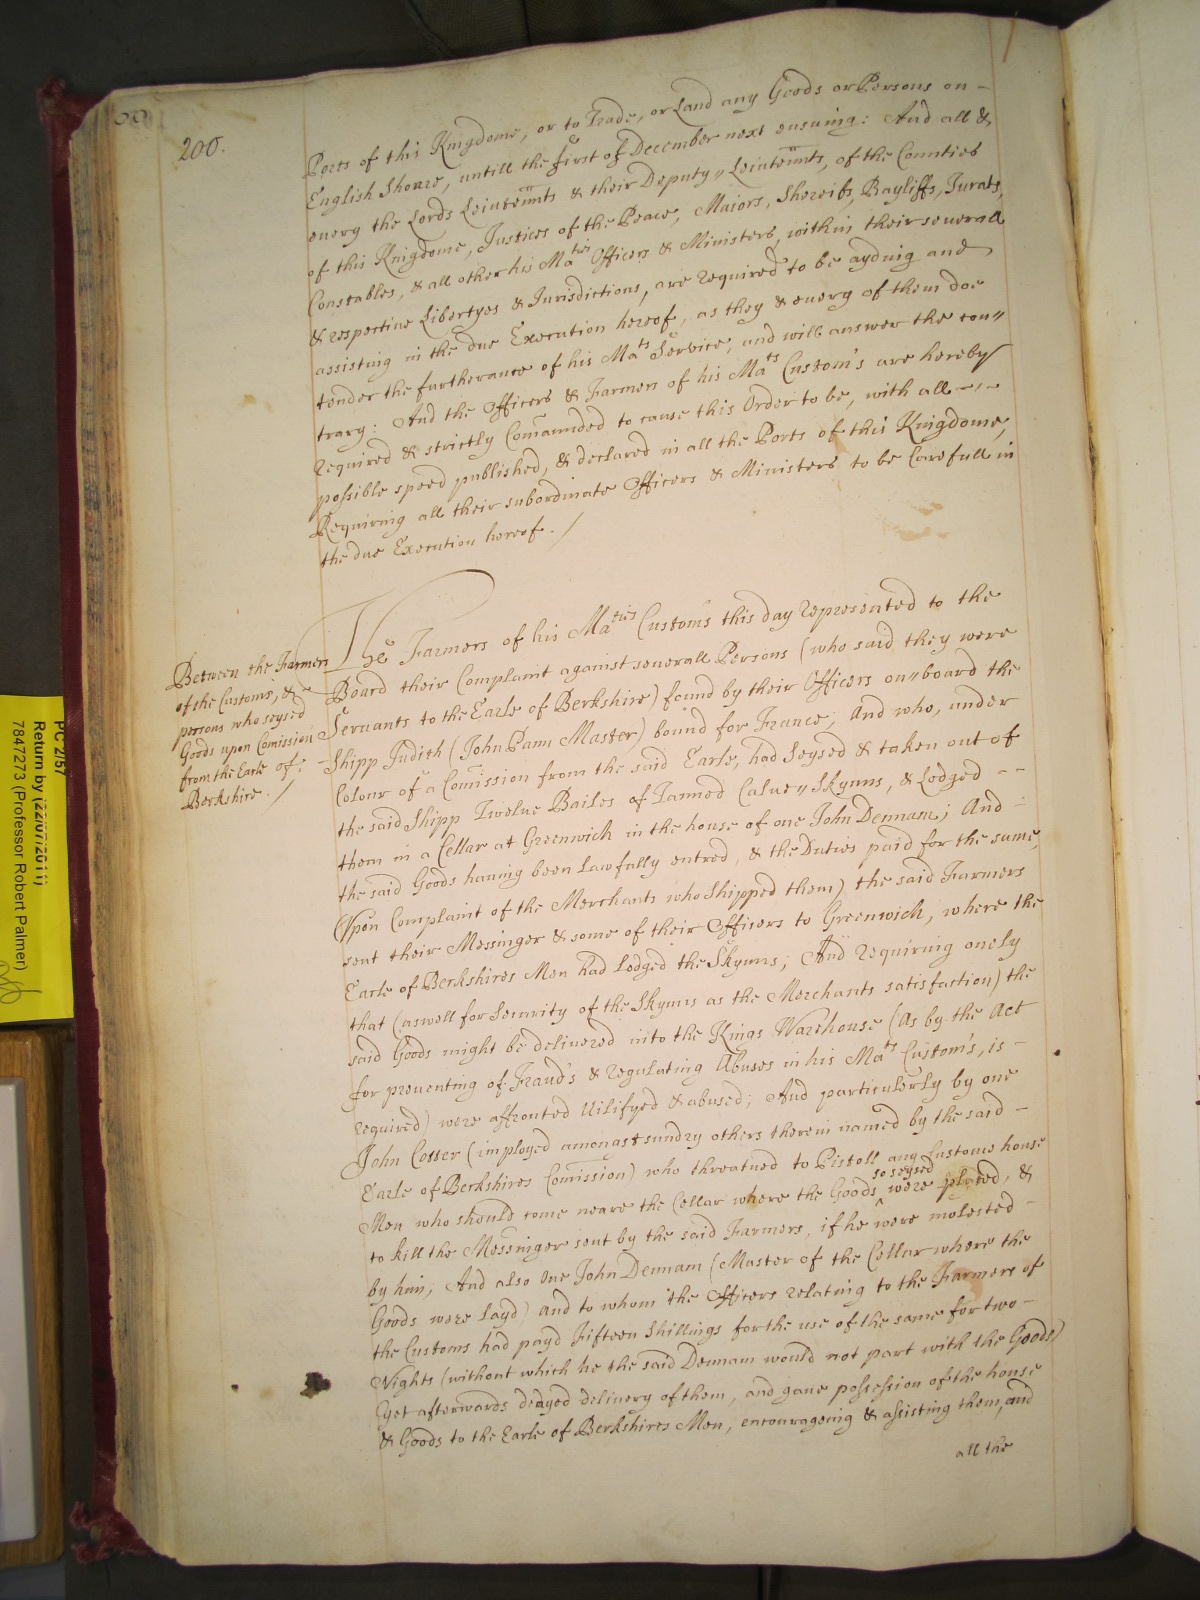 200.
Ports of this Kingdome, or to Trade, or Land any Goods or Persons on -
English Shoare, untill the first of December next ensuing: And all &
every the Lords Leiuten̄nts & their Deputy,, Leiuten̄nts, of the Counties
of this Kingdome, Justices of the Peace, Maiors, Shereifs, Bayliffs, Jurats,
Constables, & all other his Maties Officers & Ministers, within their severall
& respective Libertyes & Jurisdictions, are required to be ayding and
assisting in the due Execution hereof, as they & every of them doe
tender the furtherance of his Mats Service, and will answer the con,,
trary: And the Officers & Farmers of his Mats Custom's are hereby
required & strictly Com̄aunded to cause this Order to be, with all - -
possible speed published, & declared in all the Ports of this Kingdome,
Requiring all their subordinate Officers & Ministers to be Carefull in
the due Execution hereof. /
Between the Farmers
of the Customs, &
persons who seysed
Goods upon Com̄ission
from the Earle of
Berkshire. /
The Farmers of his Maties Customs this day represented to the
Board their Complaint against severall Persons (who said they were
Servants to the Earle of Berkshire) found by their Officers on,,board the
Shipp Judith (John Pann Master) bound for France; And who, under
Colour of a Com̄ission from the said Earle, had Seysed & taken out of
the said Shipp Twelve Bailes of Tanned Calve,, Skynns, & Lodged - -
them in a Cellar at Greenwich in the house of one John Dennam; And -
the said Goods having been Lawfully entred, & the Duties paid for the same,
(Vpon Complaint of the Merchants who Shipped them) the said Farmers
sent their Messinger & some of their Officers to Greenwich, where the
Earle of Berkshires Men had Lodged the Skynns; And requiring onely
that (aswell for Security of the Skynns as the Merchants satisfaction) the
said Goods might be delivered into the Kings Warehouse (As by the Act
for preventing of Fraud's & regulating Abuses in his Mats Custom's, is -
required) were affronted Vilifyed & abused; And particulerly by one
John Cosser (imployed amongst sundry others therein named by the said -
Earle of Berkshires Com̄ission) who threatned to Pistoll any Custome house
Men who should come neare the Cellar where the Goods so seysed were placed, &
to kill the Messinger sent by the said Farmers, if he were molested -
by him, And also One John Dennam (Master of the Cellar where the
Goods were layd) and to whom the Officers relating to the Farmers of
the Customs had payd Fifteen Shillings for the use of the same for two -
Nights (without which he the said Dennam would not part with the Goods)
yet afterwards denyed delivery of them, and gave possession of the house
& Goods to the Earle of Berkshires Men, encourageing & assisting them, and
all the
PC 2/57
Return by (22/07/2011)
7847273 (Professor Robert Palmer)